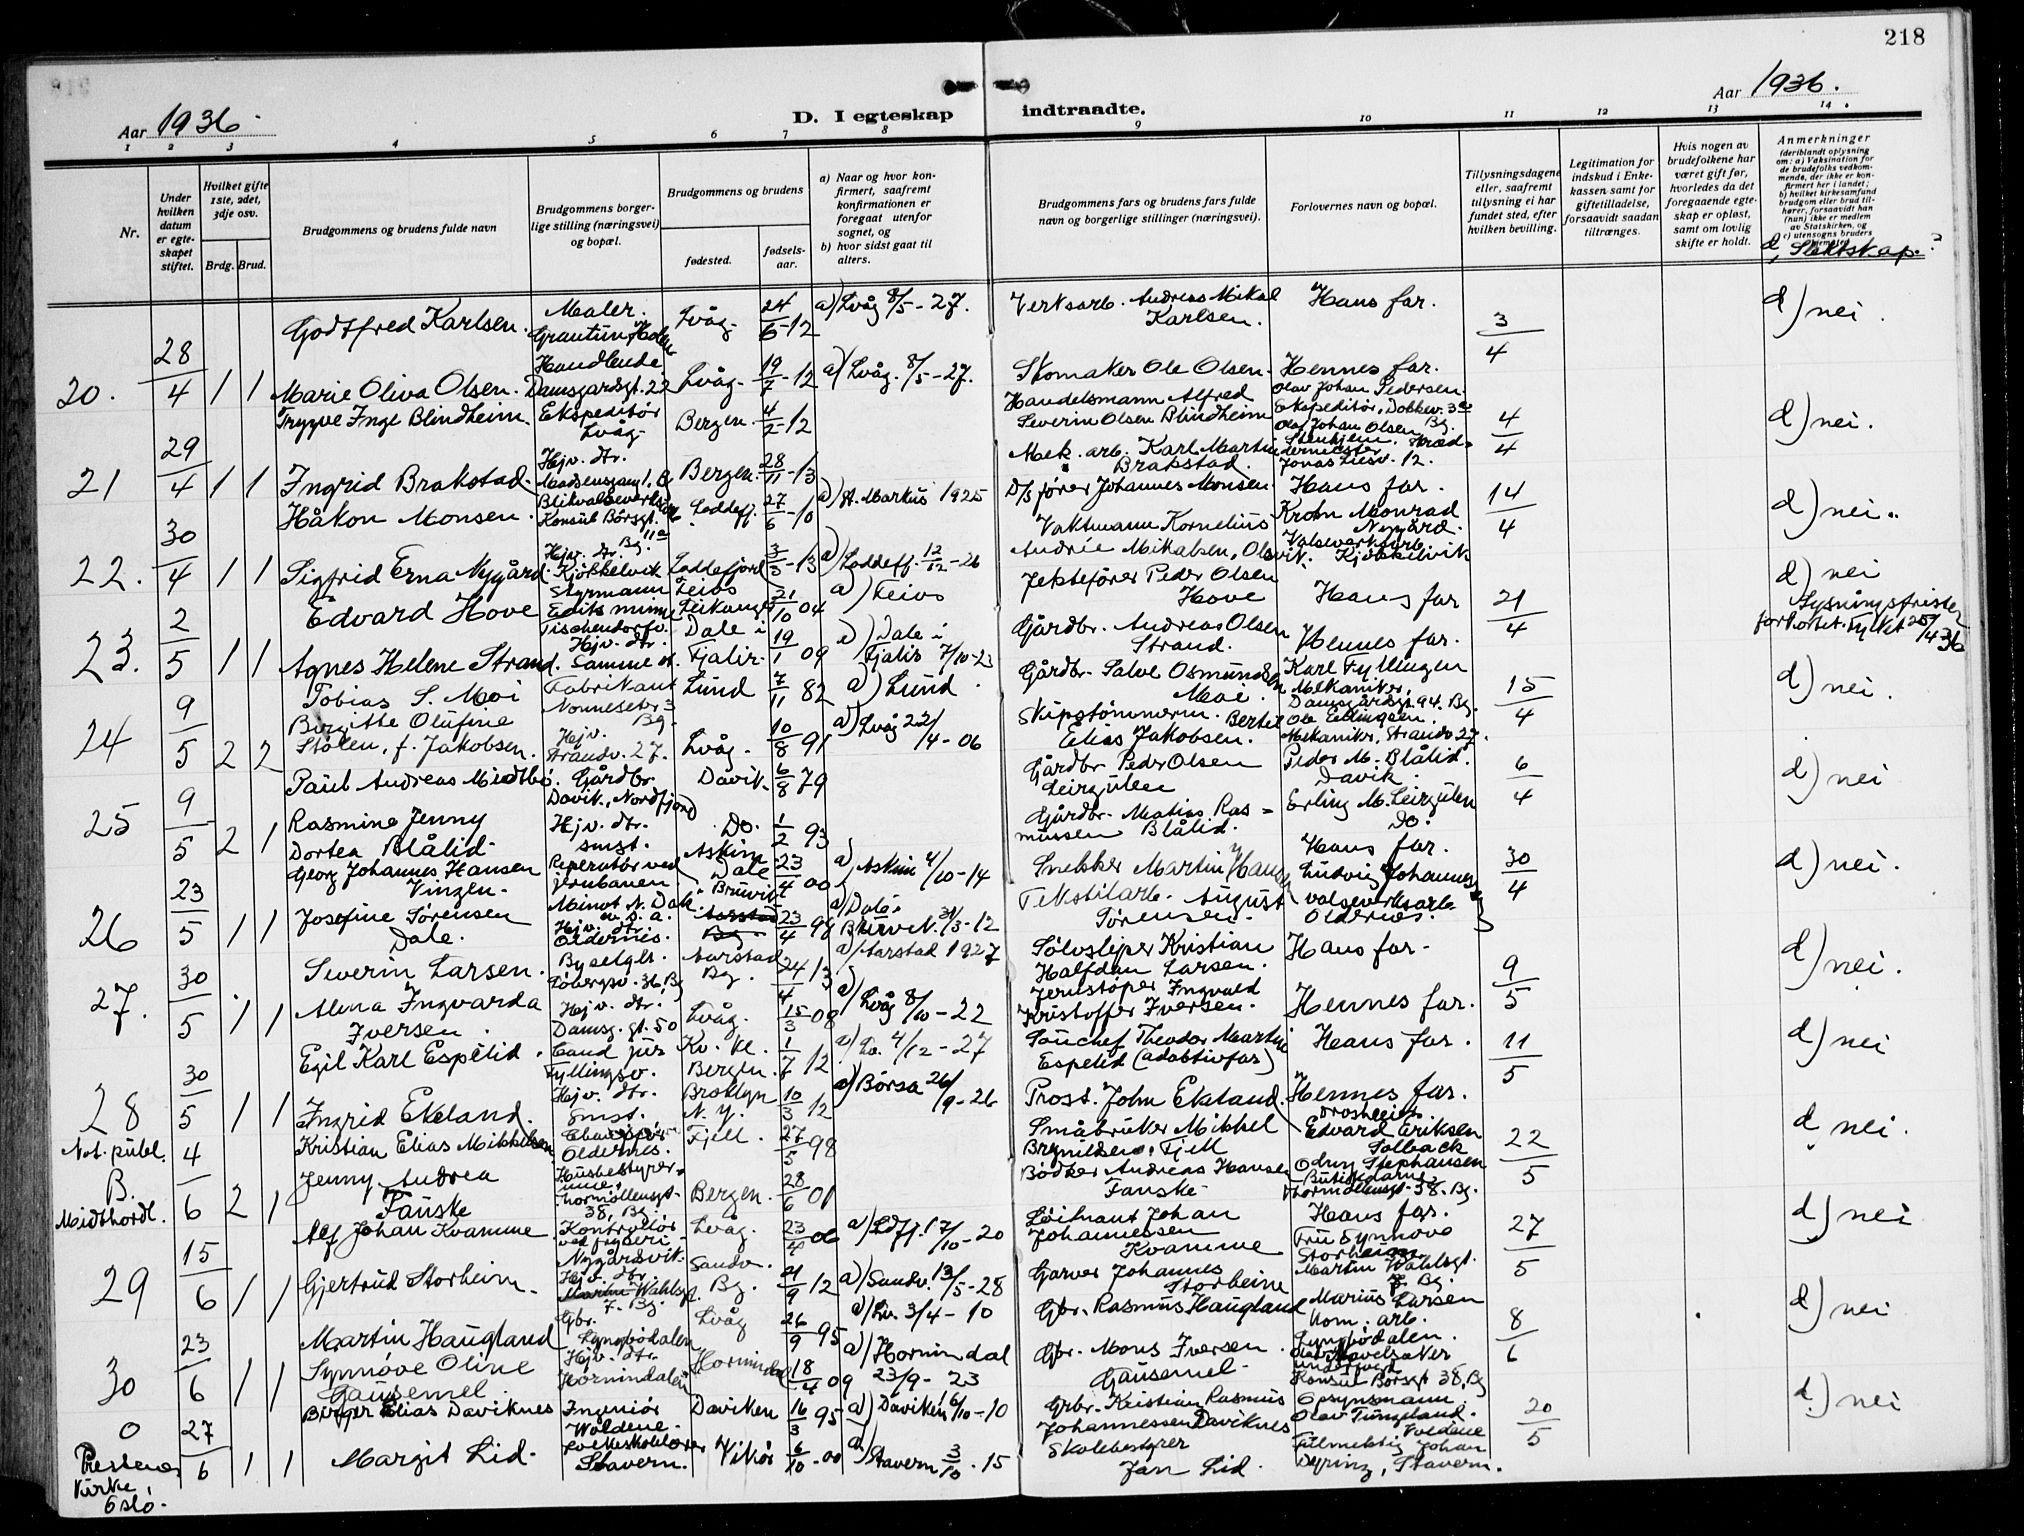 218
Aar 1936.
D. I egteskap indtraadte.
Aar 1936.
1 2 3 4 5 6 7 8 9 10 11 12 13 14.
Nr.
Under hvilken datum er egteskapet stiftet.
Hvilket gifte 1ste, 2det, 3dje osv.
Brdg. Brud.
Brudgommens og brudens fulde navn
Brudgommens borgerlige stilling (næringsvei) og bopæl.
Brudgommens og brudens
fødested.
fødselsaar.
a) Naar og hvor konfirmert, saafremt konfirmationen er foregaat utenfor sognet, og
b) hvor sidst gaat til alters.
Brudgommens fars og brudens fars fulde navn og borgerlige stillinger (næringsvei).
Forlovernes navn og bopæl.
Tillysningsdagene eller, saafremt tillysning ei har fundet sted, efter hvilken bevilling.
Legitimation for indskud i Enkekassen samt for giftetilladelse, forsaavidt saadan tiltrænges.
Hvis nogen av brudefolkene har været gift før, hvorledes da det foregaaende egteskap er opløst, samt om lovlig skifte er holdt.
Anmerkninger
(deriblandt oplysning om: a) Vaksination for de brudefolks vedkommende, der ikke er konfirmert her i landet; b) hvilket kirkesamfund brudgom eller brud tilhører, forsaavidt han (hun) ikke er medlem av Statskirken, og c) utensogns bruders hjemsted
d, Slektskap?
Godtfred Karlsen. Maler. Lvåg. 24/6-12 a) Lvåg 8/5-27. Verksarb. Andreas Mikal Karlsen. Hans far. 3/4 d) nei.
20. 28/4 1 1 Marie Oliva Olsen. Damsgardsgt. 22 Lvåg. 12 a) Lvåg. 8/5-27. Skomaker Ole Olsen. Hennes far.
Trygve Inge Blindheim. Ekspeditør Lvåg. Bergen. 4/2-12 Handelsmann Alfred Severin Olsen Blindheim Olav Johan Pedersen Ekspeditør, 4/4 d) nei.
21 29/4 1 1 Ingrid Brakstad. Hjv. dtr. Bergen. 28/11-13 Mek. arb. Karl Martin Brakstad. Olaf Johan Olsen
Håkon Monsen. Konsul Børsgt. 11a Bg. Loddefj. 27/6-10 a) St. Markus 1925 D/s fører Johannes Monsen Hans far. 14/4 d) nei.
22. 30/4 1 1 Sigfrid Erna Nygård. Hjv. dtr. Kjøkkelvik Loddefjord 3/3-13 a) Loddefj. 12/12-26 Vaktmann Kornelius Andrie Mikalsen, Olsvik. Krohn Monrad Nygård. Valseverksarb. Kjøkkelvik
Edvard Hove Styrmann Leikanger 21/10 04 Jektefører Peder Olsen Hove Hans far 21/4 d) nei
23. 2/5 1 1 Agnes Helene Strand. Hjv. dtr. Samme st. Dale i Fjaler. 19/1 09 a) Dale i Fjaler 7/10-23 Gårdbr. Andreas Olsen Strand. Hennes far. Lysningsfristen forkortet. 25/4 36
Tobias S. Moi Fabrikant Nonneseter 3 Bg. Lund 7/11 82 a) Lund. Gårdbr. Salve Osmundsen Moi. Karl Fyllingen Mekaniker, Damsgårdsgt. 94. Bg. 15/4 d) nei.
24 9/5 2 2 Birgitte Olufine Stølen, f. Jakobsen. Hjv. Strandv. 27. Lvåg. 10/8 91 a) Lvåg 22/4-06 Skipstømmerm. Bertel Elias Jakobsen. Ole Ellingsen. Mekaniker, Strandv 27.
Paul Andreas Midtbø. Gårdbr. Davik, Nordfjord Davik. 6/8 79 Gårdbr Peder Olsen Leirgulen Peder M. Blålid. Davik. 6/4 d) nei
25 9/5 2 1 Rasmine Jenny Dortea Blålid. Hjv. dtr. smst. Do. 1/2 93 Gårdbr. Matias Rasmussen Blålid. Erling M. Leirgulen Do.
Georg Johannes Hansen Vinzen. Reperatør ved jernbanen Minot N. Dak. U.S.A. Askim 23/4 00 a) Askim 4/10-14 Snekker Martin Hansen Hans far. 30/4 d) nei.
26 23/5 1 1 Josefine Sørensen Dale. Hjv. dtr. Oldernes. Dale i Bruvik 23/4 98 a) Dale i Bruvik. 31/3-12 Tekstilarb. August Sørensen. Ludvig Johannesen valseverksarb Oldernes.
Severin Larsen. Løbergsv. 36, Bg Aarstad Bg. 24/4 13 a) Aarstad 1927 Sølvsliper Kristian Halfdan Larsen. Hans far. 9/5 d) nei.
27. 30/5 1 1 Alma Ingvarda Iversen. Hjv. dtr. Damsg. gt. 50 Lvåg. 15/3 08 a) Lvåg 8/10-22 Jernstøper Ingvald Kristoffer Iversen. Hennes far.
Egil Karl Espelid. Cand jur Fyllingsv. Kv. kl. Bergen. 1/7 12 a) Lv. 4/12-27 Theodor Martin Espelid (adobtivfar) Hans far. 11/5 d) nei
28 30/5 1 1 Ingrid Ekeland. Hjv. dtr. Smst. Broklyn N.Y. 10/3 12 a) Børsa 26/9-26 Prost. John Ekeland. Hennes far.
Not. publ. B. Midthordl. 4/6 2 1 Kristian Elias Mikkelsen Oldernes. Fjell. 27/5 98 Småbruker Mikkel Brynildsen, Fjell Edvard Eriksen Solback 22/5 d, nei.
Jenny Andrea Fauske Husbestyrerinne, Thormøllensgt. 38, Bg. Bergen. 28/6 01 Bødker Andreas Hansen Fauske Odny Stephansen Butikkdame Thormøllensgt. 38. Bg.
Alf Johan Kvamme. Kontrollør Nygårdsvik. Lvåg. 23/4 06 a) Ldfj. 17/10-20 Løitnant Johan Johannessen Kvamme Hans far. 27/5 d) nei
29 15/6 1 1 Gjertrud Storheim. Hjv. dtr. Wahlsgt. 7. Bg. Sandv. Bg. 21/9 12 a) Sandv. 13/5-28 Garver Johannes Storheim Fru Synnøve Storheim Martin Wahlsgt. 7. Bg.
Martin Haugland Gbr. Lyngbødalen Lvåg 26/9 95 a) Lv. 3/4-10 Gbr. Rasmus Haugland Marius Larsen kom. arb. Lyngbødalen. 8/6 d) nei
30 23/6 1 1 Synnøve Oline Gausemel. Hjv. dtr. Hornindalen Hornindal 18/4 09 a) Hornindal 23/9-23 Gbr. Mons Iversen Gausemel. Konsul Børsgt 38, Bg
Birger Elias Daviknes Ingeniør Daviken 16/3 95 a) Daviken 6/10-10 Grbr. Kristian Rasmus Johannessen Daviknes Opsynsmann Olav Tungland. 20/5 d) nei
0 Prestenes Kirke, Oslo. 27/6 1 1 Margit Lid. Stavern. Vikør 6/10-00 a) Stavern 3/10-15 Skolebestyrer Jan Lid. Johan Dyring, Stavern.